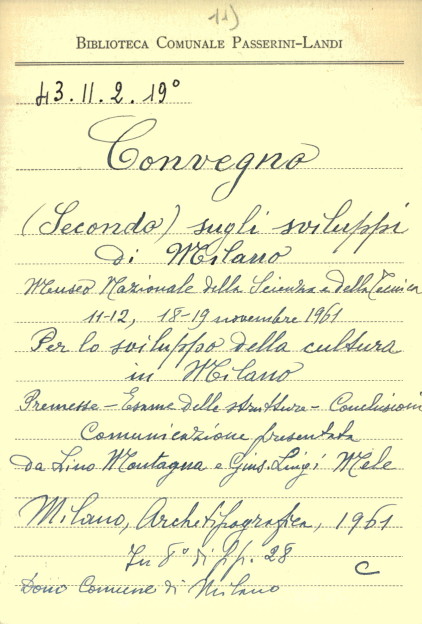 11)
BIBLIOTECA COMUNALE PASSERINI-LANDI
43.II.2.19°
Convegno
(Secondo) sugli sviluppi
di Milano
Museo Nazionale della Scienza e della Tecnica
11-12, 18-19 novembre 1961
Per lo sviluppo della cultura
in Milano
Premesse - Esame delle strutture - Conclusioni
Comunicazione presentata
da Lino Montagna e Gius. Luigi Mele
Milano, Archetipografica, 1961
In 8° di pp. 28
C
Dono Comune di Milano